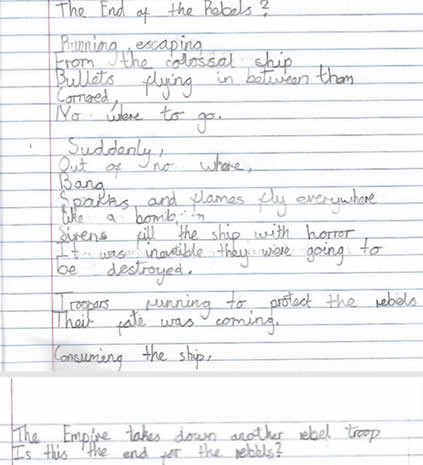 The End of the Rebels?
Running, escaping
From the colossal ship
Bullets flying in between them
Cornered,
No where to go.
Suddenly,
Out of no where,
Bang
Sparks and flames fly everywhere
like a bomb
Sirens fill the ship with horror
It was inevitible they were going to
be destroyed.
Troopers running to protect the rebels
Their fate was coming.
Consuming the ship,
The Empire takes down another rebel troop
Is this the end for the rebbls?